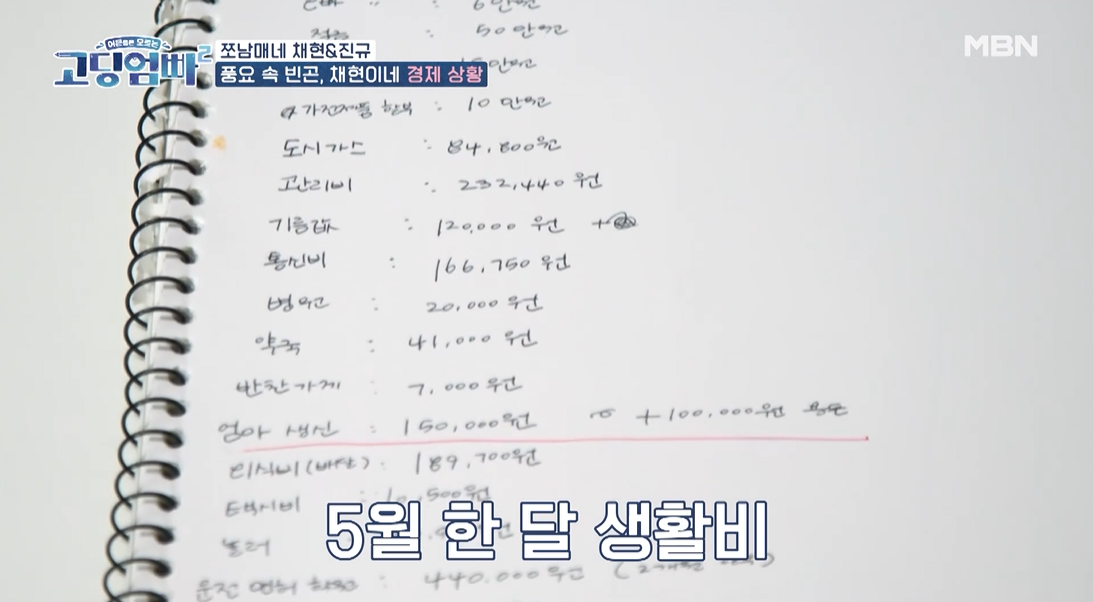 어른들은 모르는
고딩엄빠2
쪼남매네 채현&진규
풍요 속 빈곤, 채현이네 경제 상황
MBN
6만원
: 50만원
만원
가전제품 할부 : 10만원
도시가스 : 84,800원
관리비 : 232,440원
기름값 : 120,000원 +
통신비 : 166,750원
병원 : 20,000원
약국 : 41,000원
반찬가게 : 7,000원
엄마 생신 : 150,000원 + 100,000원 용돈
외식비(배달) : 189,700원
택시비 : 10,500원
원
운전면허 학원 : 440,000원
5월 한 달 생활비